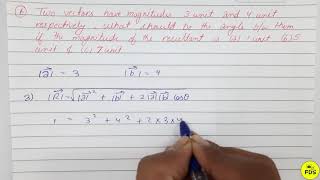 ⑥ Two vectors have magnitudes 3 unit and 4 unit
respectively. What should be the angle b/w them
if the magnitude of the resultant is (a) 1 unit (b) 5
unit & (c) 7 unit
|a⃗| = 3 |b⃗| = 4
a) |R⃗| = √|a⃗|² + |b⃗|² + 2|a⃗||b⃗| cosθ
1 = 3² + 4² + 2×3×4
FDS